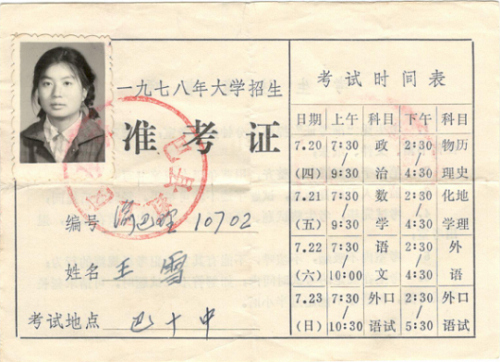 一九七八年大学招生
准考证
编号 10702
姓名 王雪
考试地点 巴十中
考试时间表
日期 上午 科目 下午 科目
7.20 7:30 政 2:30 物历
(四) / 9:30 治 / 4:30 理史
7.21 7:30 数 2:30 化地
(五) / 9:30 学 / 4:30 学理
7.22 7:30 语 2:30 外
(六) / 10:00 文 / 4:30 语
7.23 7:30 外口 2:30 外口
(日) / 10:30 语试 / 5:30 语试